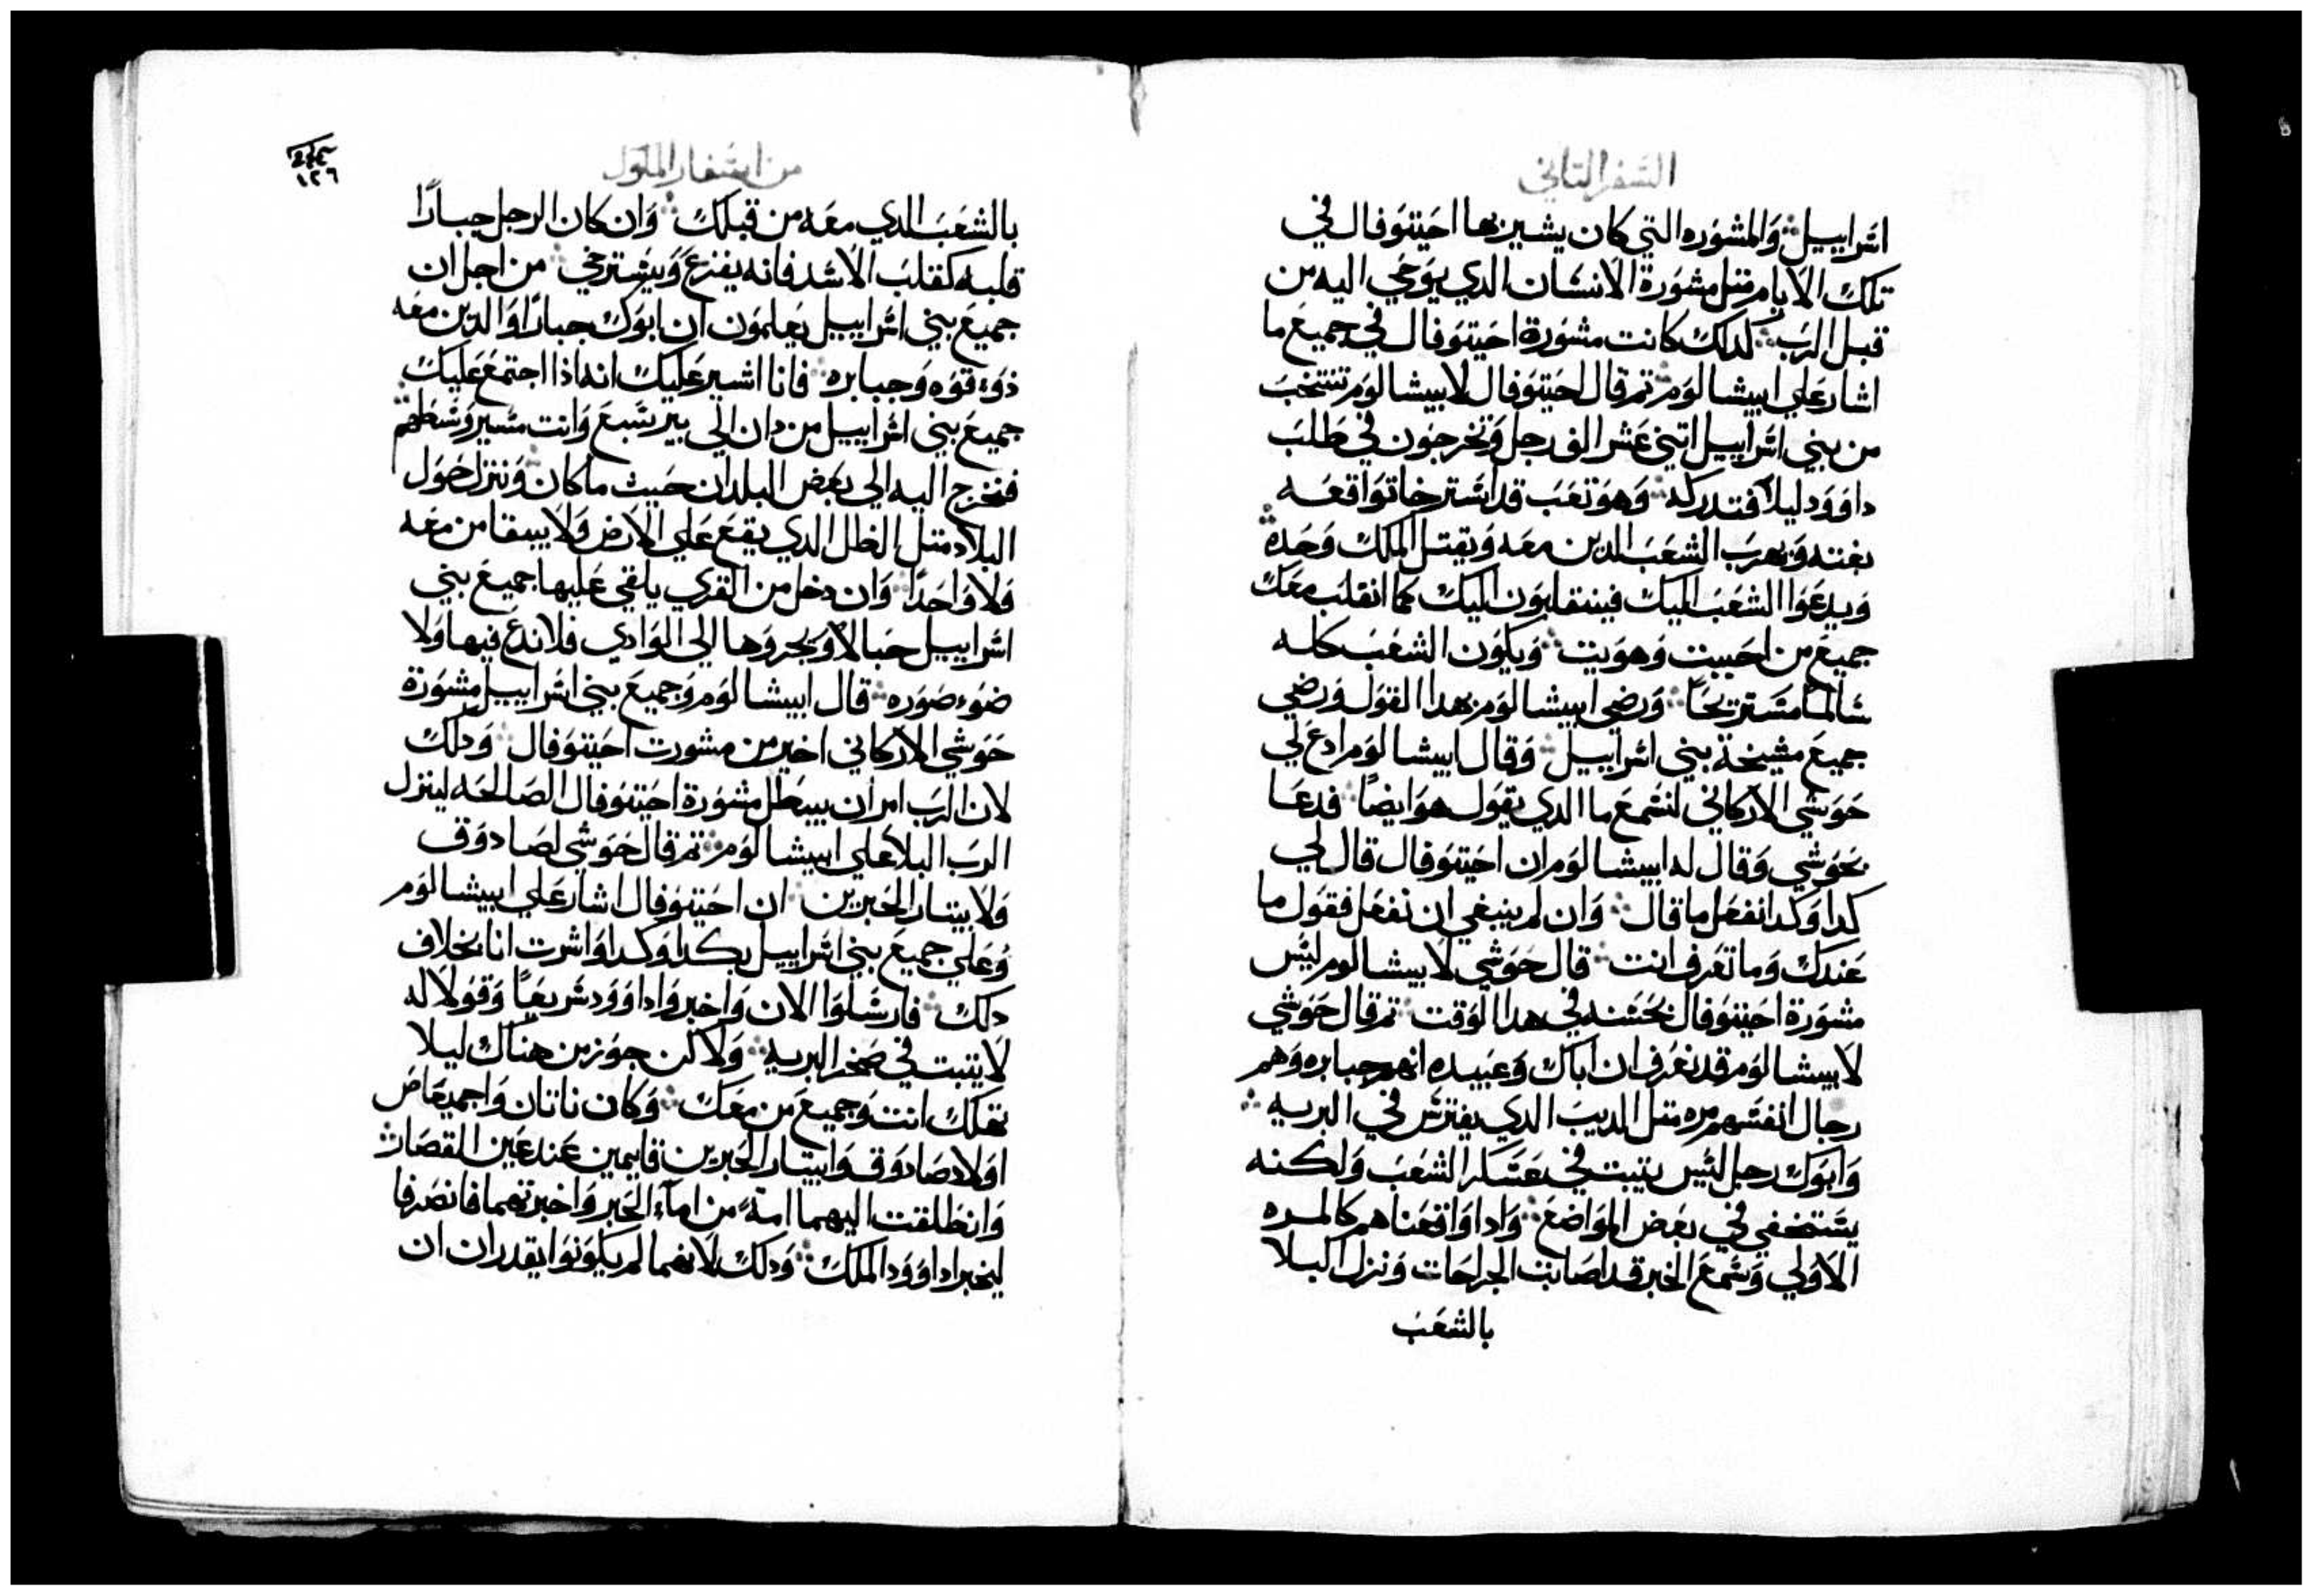 السفر التاني
اسراييل والمشوره التي كان يشير بها احيتوفال في
تلك الايام متل مشورة الانسان الدي يوحي اليه من
قبل الرب كدلك كانت مشورة احيتوفال في جميع ما
اشار علي ابيشالوم تم قال احيتوفال لابيشالوم تنتخب
من بني اسراييل اتني عشر الف رجل ونخرجون في طلب
داوود ليلا فتدركه وهو تعب قد استرخا تواقعه
بغته ويهرب الشعب الدين معه ويقتل الملك وحده
ويدعوا الشعب اليك فينقلبون اليك كما انقلب معك
جميع من احببت وهويت ويكون الشعب كله
سالما مستريحا ورضي ابيشالوم بهدا القول ورضي
جميع مشيخة بني اسراييل وقال ابيشالوم ادع لي
حوشي الاركاني لنسمع ما الدي يقول هو ايضا فدعا
بحوشي وقال له ابيشالوم ان احيتوفال قال لي
كدا وكدا نفعل ما قال وان لم ينبغي ان نفعل فقول ما
عندك وما تعرف انت قال حوشي لابيشالوم ليس
مشورة احيتوفال بحسنه في هدا الوقت تم قال حوشي
لابيشالوم قد نعرف ان اباك وعبيده انهم جبابره وهم
رجال انفسهم مره متل الديب الدي يفترس في البريه
وابوك رجل ليس يتبت في عسكر الشعب ولكنه
يستخفي في بعض المواضع وادا واقعناهم كالمره
الاولي وسمع الخبر قد اصابت الجراحات ونزل البلا
بالشعب
من اسفار الملوك
١٢٦
بالشعب الدي معه من قبلك وان كان الرجل جبارا
قلبه كقلب الاسد فانه يفزع ويسترخي من اجل ان
جميع بني اسراييل يعلمون ان ابوك جبارا والدين معه
ذوء قوه وجبابره فانا اشير عليك انه اذا اجتمع عليك
جميع بني اسراييل من دان الي بير سبع وانت مسير وسطهم
فنخرج اليه الي بعض البلدان حيث ما كان وننزل حول
البلاد متل الظل الدي يقع علي الارض ولا يبقا من معه
ولا واحدا وان دخل من القري يلقي عليها جميع بني
اسراييل حبالا ويجروها الي الوادي فلا ندع فيها ولا
ضوء صوره قال ابيشالوم وجميع بني اسراييل مشورة
حوشي الاركاني اخير من مشورت احيتوفال ودلك
لان الرب امر ان يبطل مشورة احيتوفال الصالحه لينزل
الرب البلا علي ابيشالوم تم قال حوشي لصادوق
ولابيتار الحبرين ان احيتوفال اشار علي ابيشالوم
وعلي جميع بني اسراييل بكدا وكدا واشرت انا بخلاف
دلك فارسلوا الان واخبروا داوود سريعا وقولا له
لا يتبت في صخر البريه ولاكن جوز من هناك ليلا
تهلك انت وجميع من معك وكان ناتان واجميعاص
اولاد صادوق وابيتار الحبرين قايمين عند عين القصار
وانطلقت اليهما امة من اماء الحبر واخبرتهما فانصرفا
ليخبرا داوود الملك ودلك لانهما لم يكونوا يقدران ان